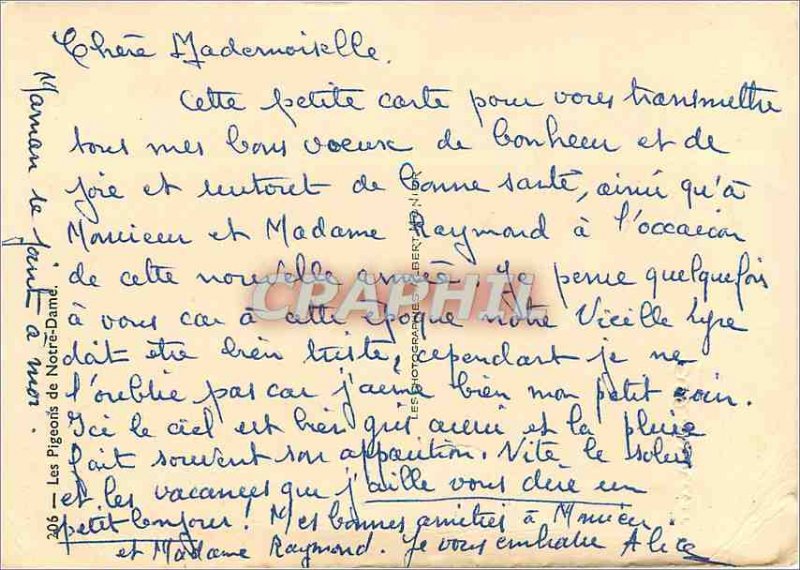 Chère Mademoiselle.
Cette petite carte pour vous transmettre
tous mes bons voeux de bonheur et de
joie et surtout de bonne santé, ainsi qu'à
Monsieur et Madame Raymond à l'occasion
de cette nouvelle année. Je pense quelquefois
à vous car à cette époque notre Vieille Lyre
doit être bien triste, cependant je ne
l'oublie pas car j'aime bien mon petit coin.
Ici le ciel est bien gris aussi et la pluie
fait souvent son apparition. Vite le soleil
et les vacances que j'aille vous dire un
petit bonjour! Mes bonnes amitiés à Monsieur
et Madame Raymond. Je vous embrasse Alice
Maman se joint à moi.
206 — Les Pigeons de Notre-Dame.
LES PHOTOGRAPHIES ALBERT MONIER
CRAPHIL